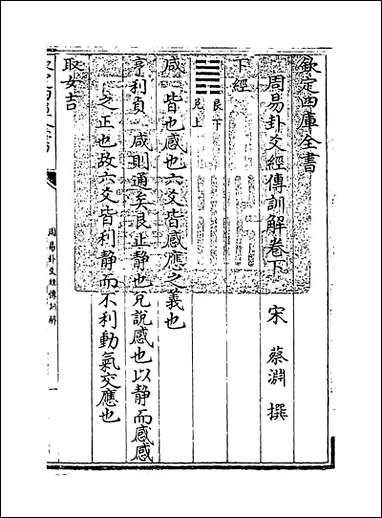 欽定四庫全書
周易卦爻經傳訓解卷下
宋 蔡淵 撰
下經
艮下
兌上
咸
皆也感也六爻皆感應之義也
亨利貞
咸則通矣艮止靜也兌說感也以靜而感感
之正也故六爻皆利靜而不利動氣交應也
取女吉
周易卦爻經傳訓解
一